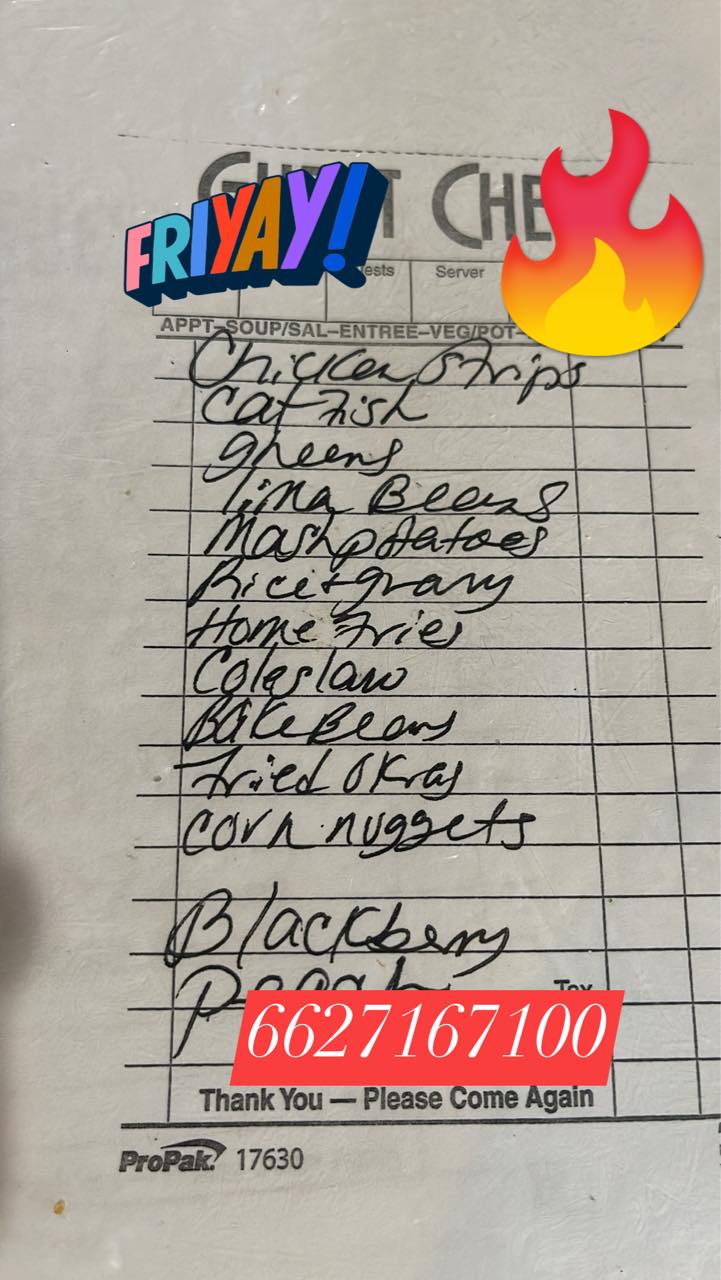 GUEST CHE
FRIYAY!
ests Server
APPT–SOUP/SAL–ENTREE–VEG/POT–
Chicken Strips
Catfish
greens
lima Beans
Mashpotatoes
Rice+gravy
Home Fries
Coleslaw
Bake Beans
Fried Okras
corn nuggets
Blackberry
Peach
Tax
6627167100
Thank You — Please Come Again
ProPak. 17630